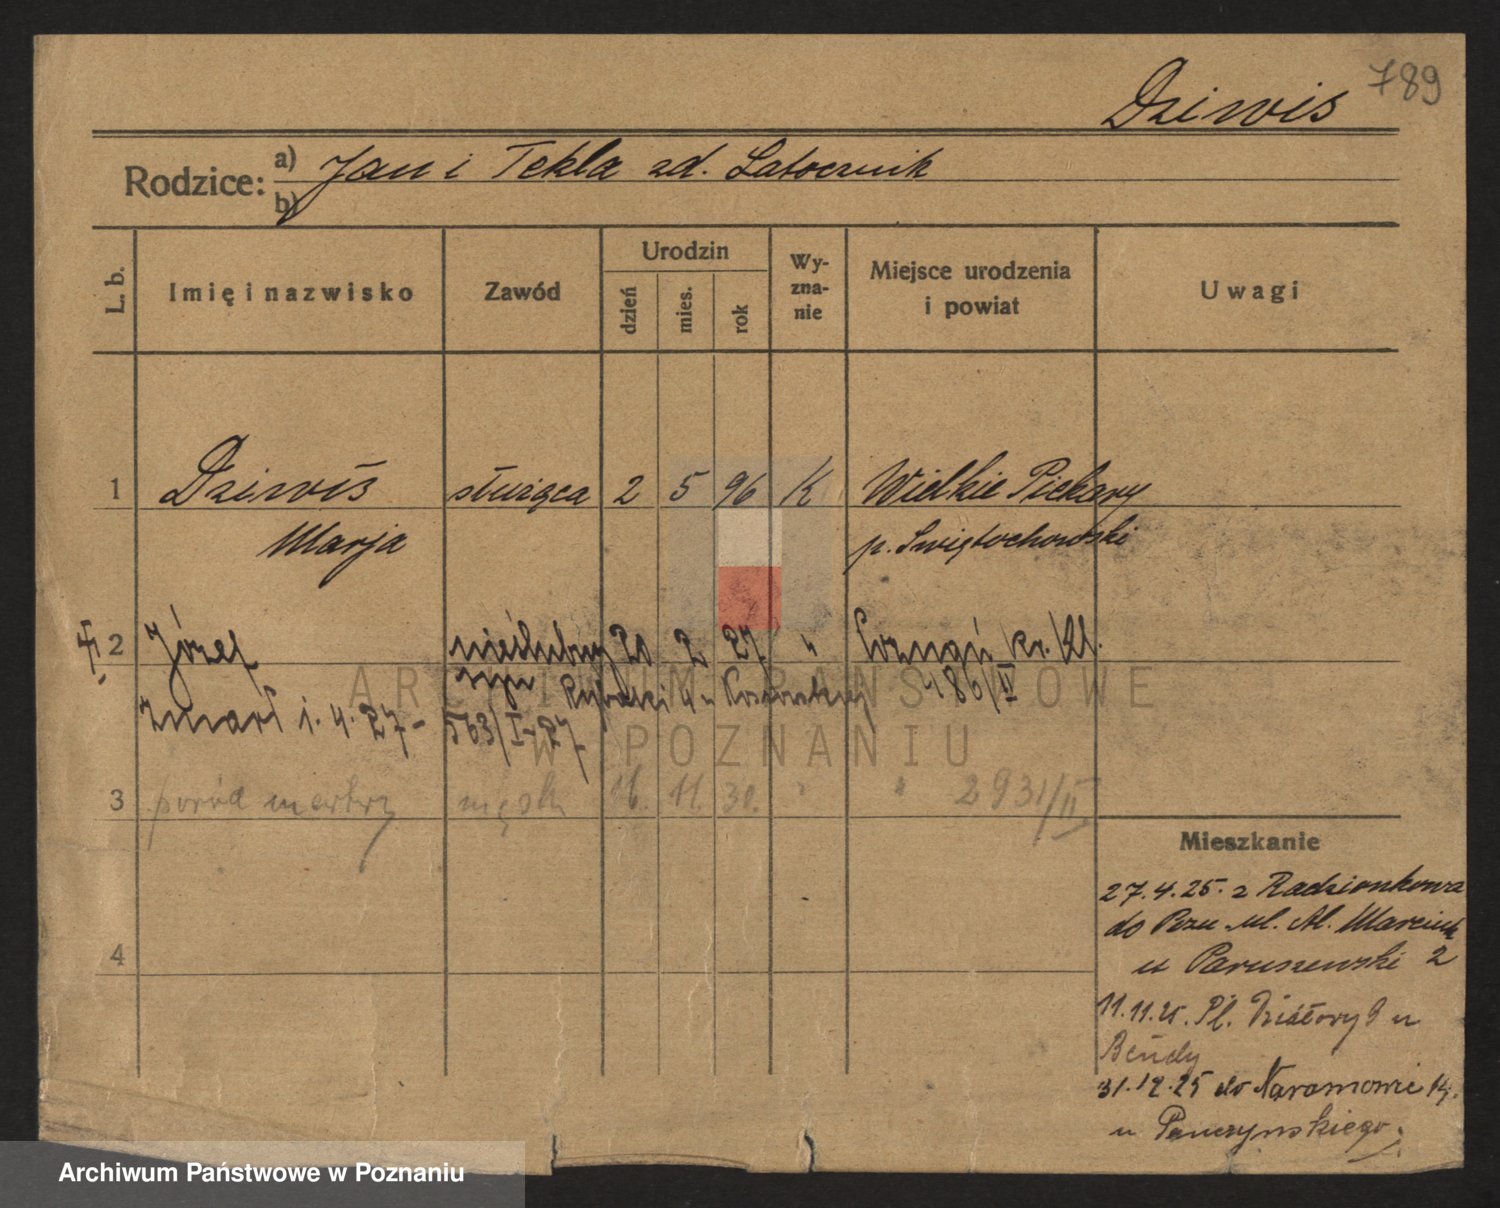 789
Dziwis
Rodzice: a) Jan i Tekla zd. Latocznik
b)
L. b. Imię i nazwisko Zawód Urodzin dzień mies. rok Wy-zna-nie Miejsce urodzenia i powiat Uwagi
1 Dziwiś służąca 2 5 96 K Wielkie Piekary
Marja p. Świętochowski
2 Józef nieślubny 20 2 27 " Poznań
syn 486/II
zmarł 1.4.27 - 563/I-27
3 poród martwy męski 16. 11. 30. " " 2931/II
4
Mieszkanie
27.4.25. z Radzionkowa
do Pozn. ul. Al. Marcink
u Paruszewski 2
11.11.25. Pl. Działowy 9 u
Bendy
31.12.25 do Naramowic 14.
u Penczyńskiego.
ARCHIWUM PAŃSTWOWE
W POZNANIU
Archiwum Państwowe w Poznaniu